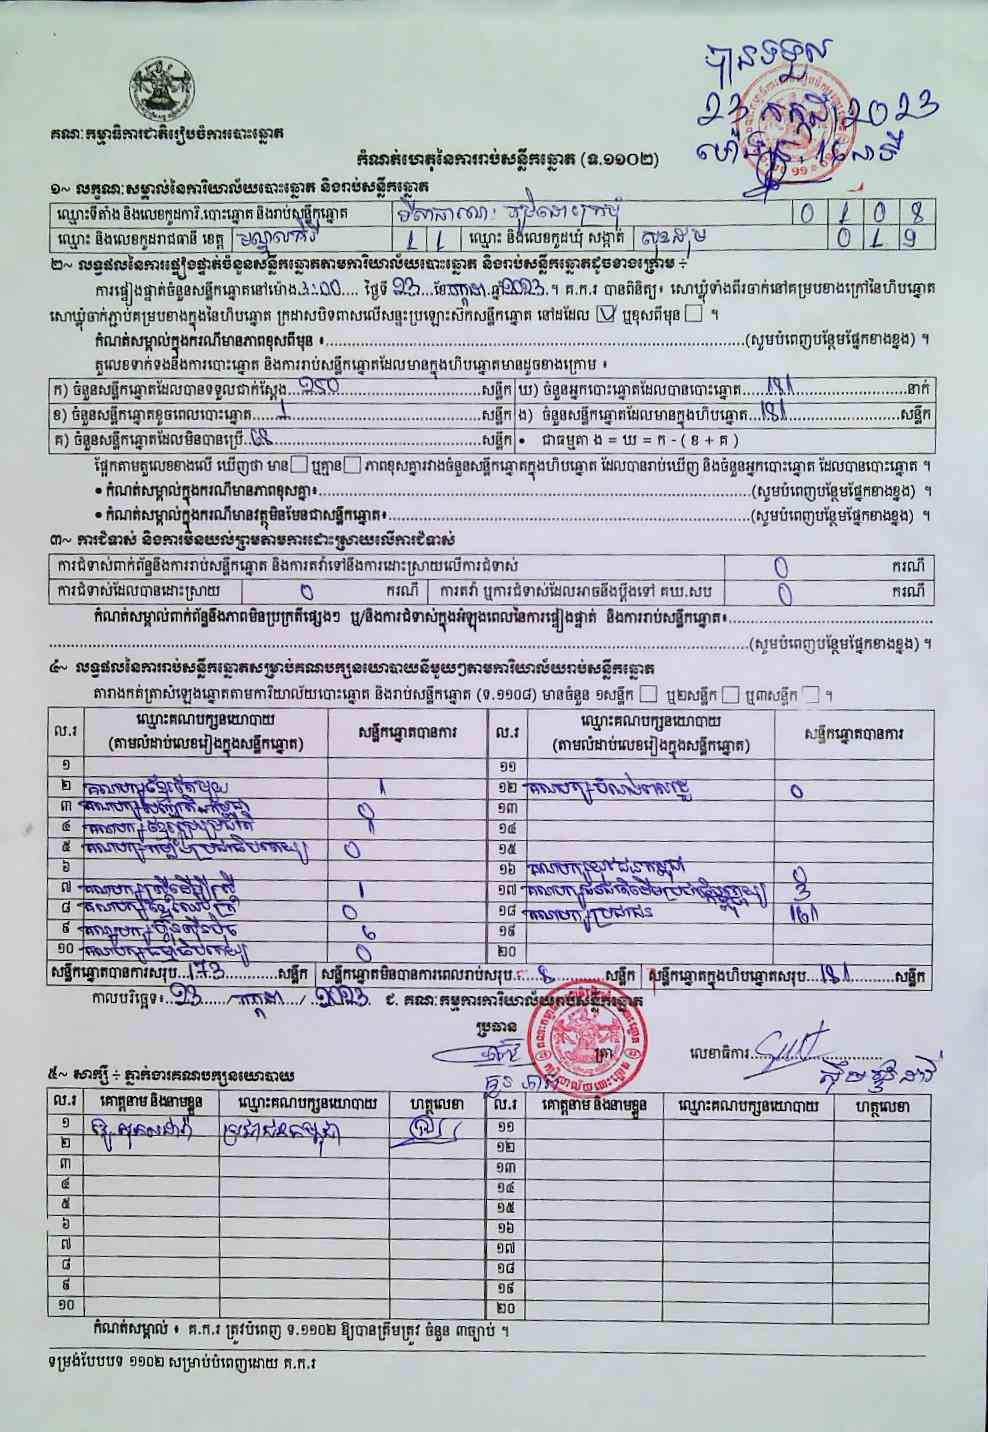 បានទទួល
23 កក្កដា 2023
គណៈកម្មាធិការជាតិរៀបចំការបោះឆ្នោត
កំណត់ហេតុនៃការរាប់សន្លឹកឆ្នោត (ទ.១១០២)
១~ លក្ខណៈសម្គាល់នៃការិយាល័យបោះឆ្នោត និងរាប់សន្លឹកឆ្នោត
ឈ្មោះទីតាំង និងលេខកូដការិ.បោះឆ្នោត និងរាប់សន្លឹកឆ្នោត 0 1 0 8
ឈ្មោះ និងលេខកូដរាជធានី ខេត្ត មណ្ឌលគិរី 1 1 ឈ្មោះ និងលេខកូដឃុំ សង្កាត់ 0 1 9
២~ លទ្ធផលនៃការផ្ទៀងផ្ទាត់ចំនួនសន្លឹកឆ្នោតតាមការិយាល័យបោះឆ្នោត និងរាប់សន្លឹកឆ្នោតដូចខាងក្រោម ÷
ការផ្ទៀងផ្ទាត់ចំនួនសន្លឹកឆ្នោតនៅម៉ោង 3:00 ថ្ងៃទី 23 ខែ កក្កដា ឆ្នាំ 2023 ។ គ.ក.រ បានពិនិត្យ៖ សោឃ្លុំទាំងពីរចាក់នៅគម្របខាងក្រៅនៃហិបឆ្នោត
សោឃ្លុំចាក់ភ្ជាប់គម្របខាងក្នុងនៃហិបឆ្នោត ក្រដាសបិទពាសលើសន្ទះប្រឡោះសឹកសន្លឹកឆ្នោត នៅដដែល ☑ ឬខុសពីមុន ☐ ។
កំណត់សម្គាល់ក្នុងករណីមានភាពខុសពីមុន ៖ (សូមបំពេញបន្ថែមផ្នែកខាងខ្នង) ។
តួលេខទាក់ទងនឹងការបោះឆ្នោត និងការរាប់សន្លឹកឆ្នោតដែលមានក្នុងហិបឆ្នោតមានដូចខាងក្រោម ៖
ក) ចំនួនសន្លឹកឆ្នោតដែលបានទទួលជាក់ស្តែង 250 សន្លឹក ឃ) ចំនួនអ្នកបោះឆ្នោតដែលបានបោះឆ្នោត 181 នាក់
ខ) ចំនួនសន្លឹកឆ្នោតខូចពេលបោះឆ្នោត 1 សន្លឹក ង) ចំនួនសន្លឹកឆ្នោតដែលមានក្នុងហិបឆ្នោត 181 សន្លឹក
គ) ចំនួនសន្លឹកឆ្នោតដែលមិនបានប្រើ 68 សន្លឹក • ជាធម្មតា ង = ឃ = ក - ( ខ + គ )
ផ្អែកតាមតួលេខខាងលើ ឃើញថា មាន ☐ ឬគ្មាន ☐ ភាពខុសគ្នារវាងចំនួនសន្លឹកឆ្នោតក្នុងហិបឆ្នោត ដែលបានរាប់ឃើញ និងចំនួនអ្នកបោះឆ្នោត ដែលបានបោះឆ្នោត ។
• កំណត់សម្គាល់ក្នុងករណីមានភាពខុសគ្នា៖ (សូមបំពេញបន្ថែមផ្នែកខាងខ្នង) ។
• កំណត់សម្គាល់ក្នុងករណីមានវត្ថុមិនមែនជាសន្លឹកឆ្នោត៖ (សូមបំពេញបន្ថែមផ្នែកខាងខ្នង) ។
៣~ ការជំទាស់ និងការមិនយល់ព្រមតាមការដោះស្រាយលើការជំទាស់
ការជំទាស់ពាក់ព័ន្ធនឹងការរាប់សន្លឹកឆ្នោត និងការតវ៉ាទៅនឹងការដោះស្រាយលើការជំទាស់ 0 ករណី
ការជំទាស់ដែលបានដោះស្រាយ 0 ករណី ការតវ៉ា ឬការជំទាស់ដែលអាចនឹងប្តឹងទៅ គឃ.សប 0 ករណី
កំណត់សម្គាល់ពាក់ព័ន្ធនឹងភាពមិនប្រក្រតីផ្សេងៗ ឬ/និងការជំទាស់ក្នុងអំឡុងពេលនៃការផ្ទៀងផ្ទាត់ និងការរាប់សន្លឹកឆ្នោត៖
(សូមបំពេញបន្ថែមផ្នែកខាងខ្នង) ។
៤~ លទ្ធផលនៃការរាប់សន្លឹកឆ្នោតសម្រាប់គណបក្សនយោបាយនីមួយៗតាមការិយាល័យរាប់សន្លឹកឆ្នោត
តារាងកត់ត្រាសំឡេងឆ្នោតតាមការិយាល័យបោះឆ្នោត និងរាប់សន្លឹកឆ្នោត (ទ.១១០៨) មានចំនួន ១សន្លឹក ☐ ឬ២សន្លឹក ☐ ឬ៣សន្លឹក ☐ ។
ល.រ ឈ្មោះគណបក្សនយោបាយ (តាមលំដាប់លេខរៀងក្នុងសន្លឹកឆ្នោត) សន្លឹកឆ្នោតបានការ ល.រ ឈ្មោះគណបក្សនយោបាយ (តាមលំដាប់លេខរៀងក្នុងសន្លឹកឆ្នោត) សន្លឹកឆ្នោតបានការ
១ ១១
២ គណបក្សខ្មែរតែមួយ 1 ១២ 0
៣ 0 ១៣
៤ ១៤
៥ គណបក្សកម្លាំងប្រជាធិបតេយ្យ 0 ១៥
៦ ១៦ គណបក្សយុវជនកម្ពុជា 0
៧ គណបក្សស្ត្រីដើម្បីស្ត្រី 1 ១៧ 3
៨ 0 ១៨ គណបក្សប្រជាជន 161
៩ គណបក្សហ្វ៊ុនស៊ិនប៉ិច 6 ១៩
១០ គណបក្សធម្មាធិបតេយ្យ 0 ២០
សន្លឹកឆ្នោតបានការសរុប 173 សន្លឹក សន្លឹកឆ្នោតមិនបានការពេលរាប់សរុប 8 សន្លឹក សន្លឹកឆ្នោតក្នុងហិបឆ្នោតសរុប 181 សន្លឹក
កាលបរិច្ឆេទ៖ 23 / កក្កដា / 2023 ជ. គណៈកម្មការការិយាល័យរាប់សន្លឹកឆ្នោត
ប្រធាន
ត្រា លេខាធិការ
៥~ សាក្សី ÷ ភ្នាក់ងារគណបក្សនយោបាយ
ល.រ គោត្តនាម និងនាមខ្លួន ឈ្មោះគណបក្សនយោបាយ ហត្ថលេខា ល.រ គោត្តនាម និងនាមខ្លួន ឈ្មោះគណបក្សនយោបាយ ហត្ថលេខា
១ ប្រជាជនកម្ពុជា ១១
២ ១២
៣ ១៣
៤ ១៤
៥ ១៥
៦ ១៦
៧ ១៧
៨ ១៨
៩ ១៩
១០ ២០
កំណត់សម្គាល់ ៖ គ.ក.រ ត្រូវបំពេញ ទ.១១០២ ឱ្យបានត្រឹមត្រូវ ចំនួន ៣ច្បាប់ ។
ទម្រង់បែបបទ ១១០២ សម្រាប់បំពេញដោយ គ.ក.រ